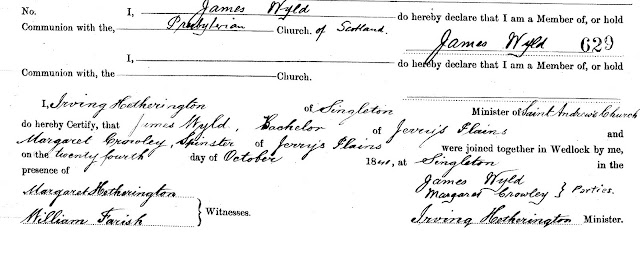 No. I, James Wyld do hereby declare that I am a Member of, or hold
Communion with the, Presbyterian Church. of Scotland. James Wyld 629
I, do hereby declare that I am a Member of, or hold
Communion with the, Church.
I, Irving Hetherington of Singleton Minister of Saint Andrew's Church
do hereby Certify, that James Wyld, Bachelor of Jerry's Plains and
Margaret Crowley, Spinster of Jerry's Plains were joined together in Wedlock by me,
on the twenty fourth day of October 184 at Singleton in the
presence of
James Wyld
Margaret Crowley } Parties.
Margaret Hetherington
William Farish } Witnesses.
Irving Hetherington Minister.